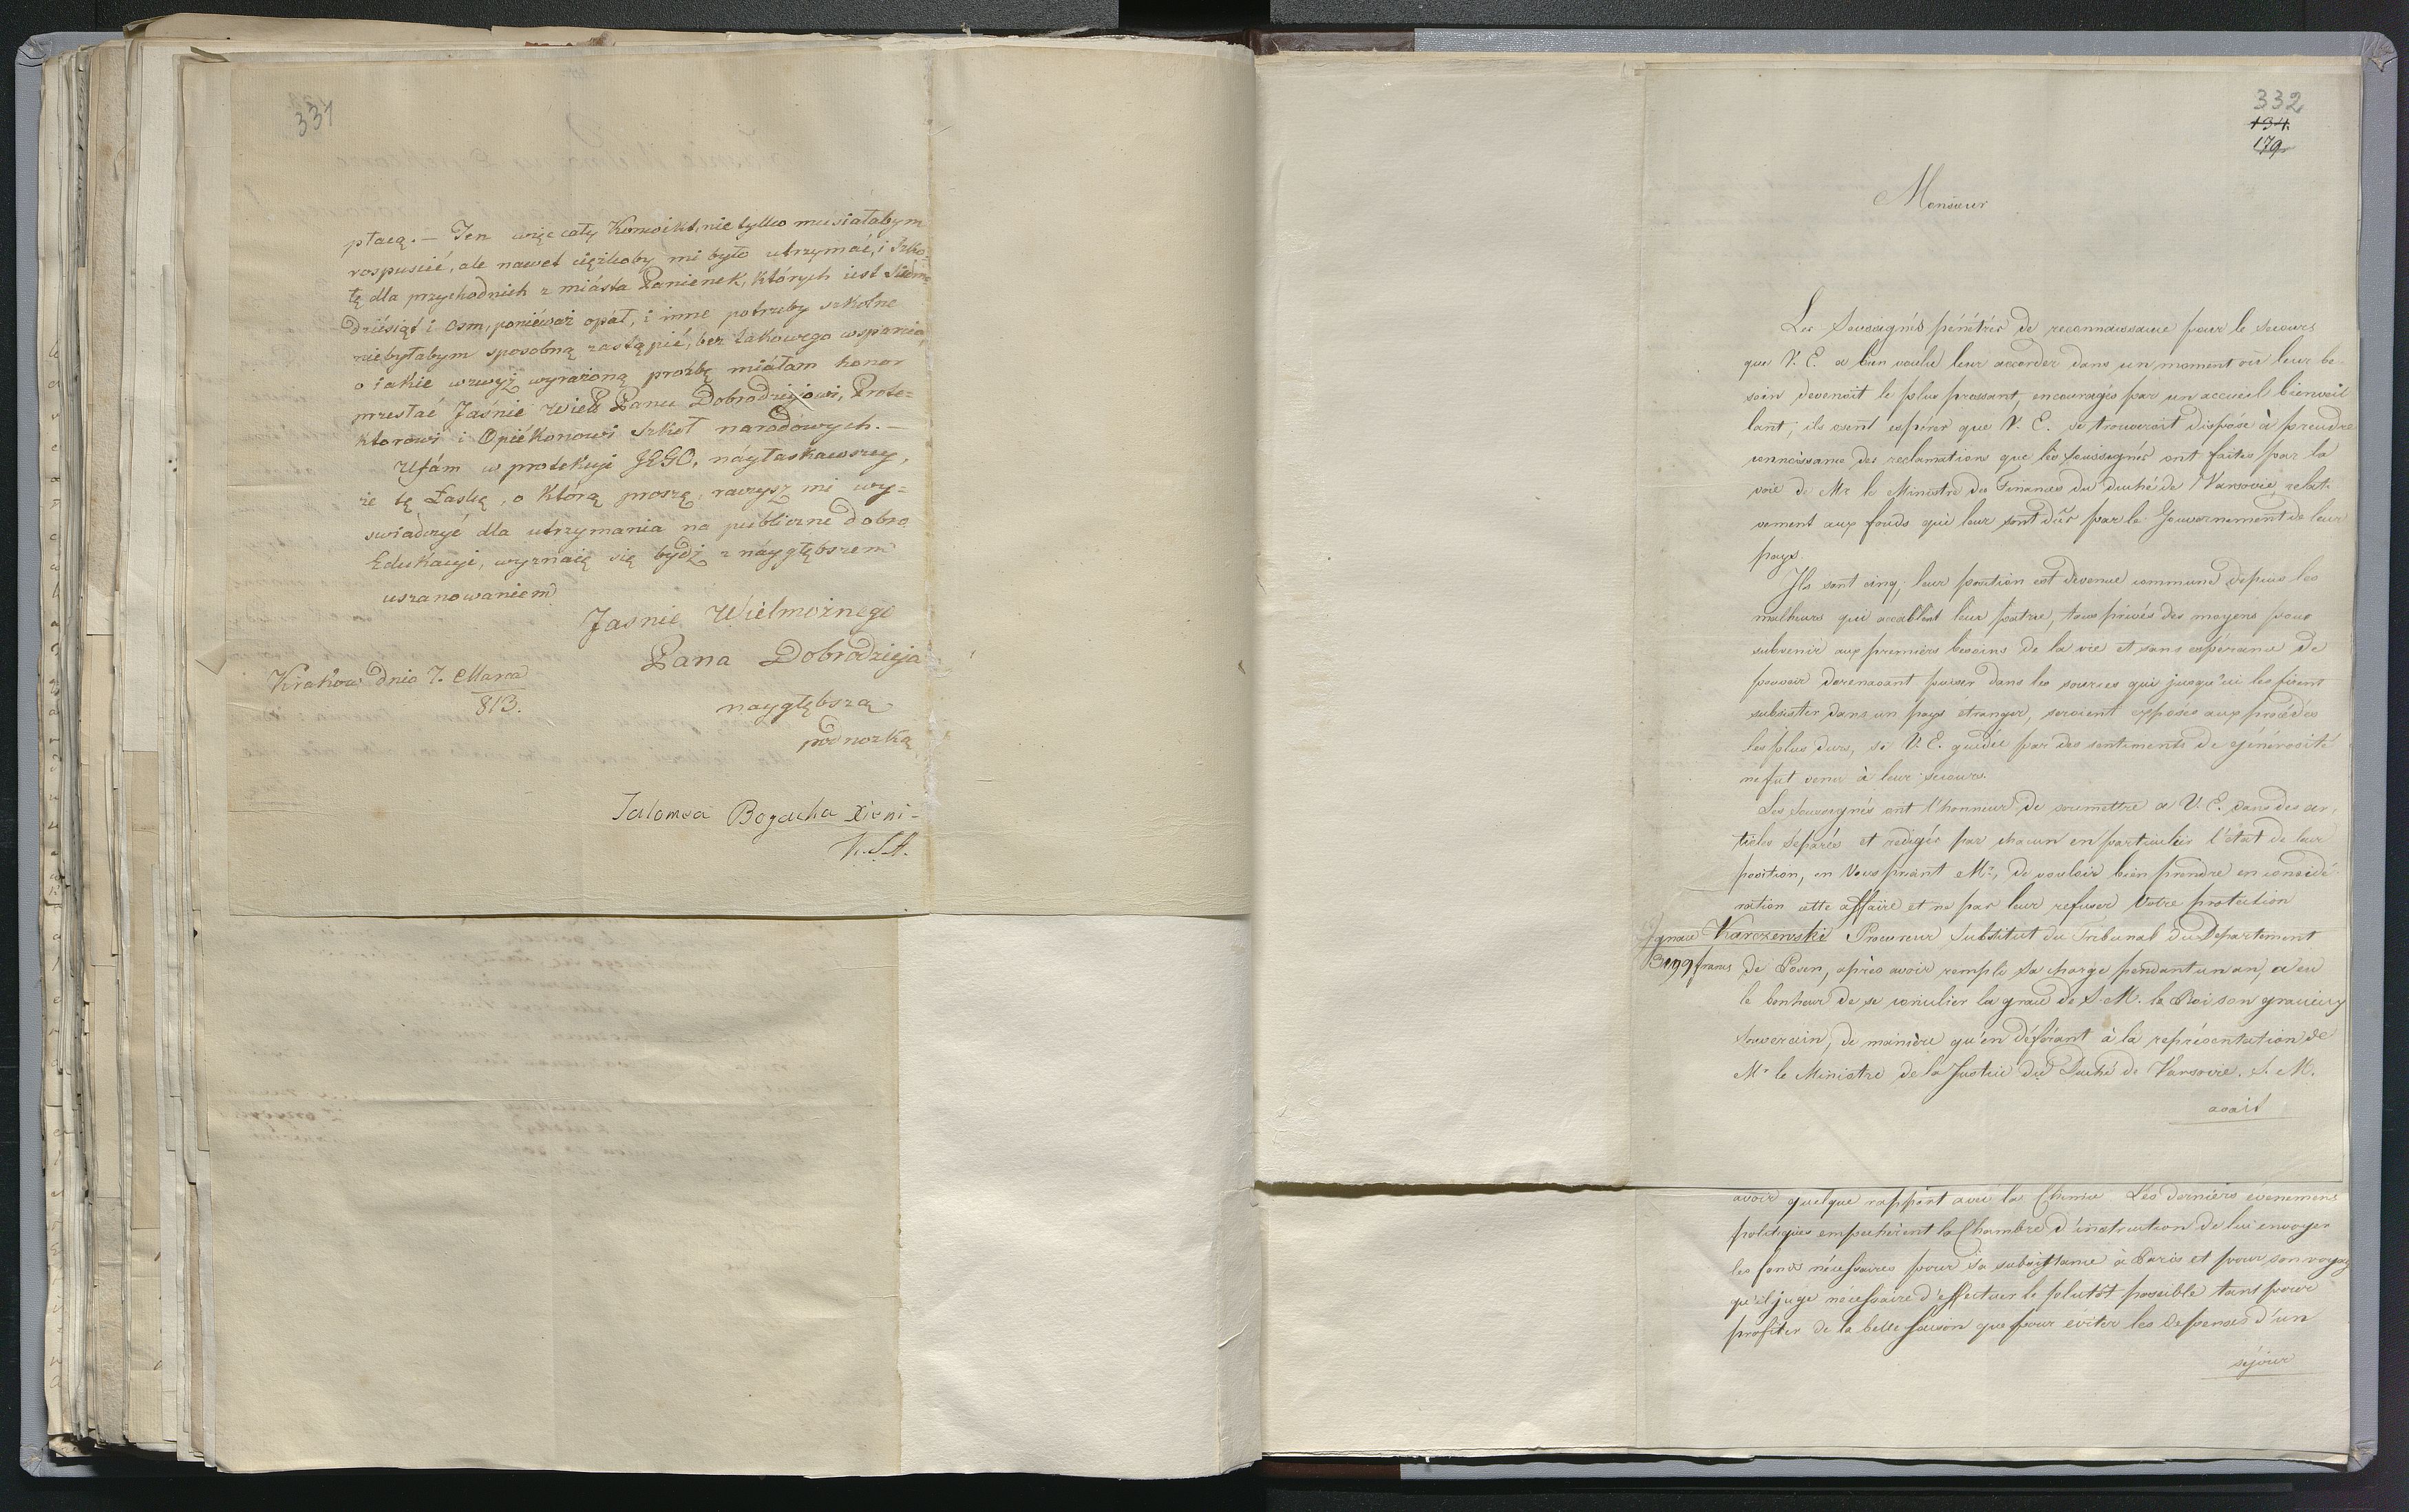 331
płacą. – Ten więc cały Konwikt, nie tylko musiałabym
rospuscić, ale nawet ciężkoby mi było utrzymać, i Szko-
łę dla przychodnich z miásta Panienek, których iest Siedm
dziésiąt i Osm, poniéważ opał, i inne potrzeby szkolne
niebyłabym sposobną zastąpić, bez takowego wsparcia,
o iakie wzwyż wyrażoną proźbę miáłam honor
przesłać Jaśnie Wiel Panu Dobrodziejowi, Prote=
ktorowi i Opiékonowi Szkół narodowych. –
Ufám w protekcyi JEGO, náyłaskawszey,
że tę Łaskę, o którą proszę, raczysz mi wy=
swiadczyć dla utrzymania na publiczne dobro
Edukacyi, wyznaię się bydź z náygłębszem
uszanowaniem
Jasnie Wielmożnego
Pana Dobrodzieja
Kraków dnia 7. Marca
813.
nayglębszą
podnozką
Salomea Bogacka Xieni-
K.S.A.
332
134.
179
Monsieur
Les Soussignés pénétrés de reconnaissance pour le secours
que V. E. a bien voulu leur accorder dans un moment où leur be-
soin devenoit le plus pressant, encouragés par un accueil bienveil
lant, ils osent espérer que V. E. se trouveroit disposé à prendre
connoissance des reclamations que les soussignés ont faites par la
voie de Mr le Ministre des Finances du duché de Varsovie, relati-
vement aux fonds qui leur sont dûs par le Gouvernement de leur
pays.
Ils sont cinq; leur position est devenue commune depuis les
malheurs qui accablent leur patrie, tous privés des moyens pour
subvenir aux premiers besoins de la vie et sans espérance de
pouvoir dorenavant puiser dans les sources qui jusqu'ici les firent
subsister dans un pays etranger, seroient exposés aux procédés
les plus durs, si V. E. guidée par des sentiments de générosité
ne fut venu à leur secours.
Les Soussignés ont l'honneur de soumettre a V. E. dans des ar-
ticles séparés et redigés par chacun en particulier l'état de leur
position, en Vous priant Mr, de vouloir bien prendre en considé-
ration cette affaire et ne pas leur refuser Votre protection
Ignace Karczewski Procureur Substitut du Tribunal du Departement
3199 francs de Posen, après avoir rempli sa charge pendant un an, a eu
le bonheur de se concilier la grace de S. M. le Roi son gracieux
Souverain, de manière qu'en déférant à la représentation de
Mr le Ministre de la Justice du Duché de Varsovie. S. M.
avait
avoir quelque rapport avec la Chimie Les derniers événemens
politiques empechèrent la Chambre d'instruction de lui envoyer
les fonds nécessaires pour sa subsistance à Paris et pour son voyag
qu'il juge necessaire d'effectuer le plutôt possible tant pour
profiter de la belle saison que pour éviter les depenses d'un
séjour